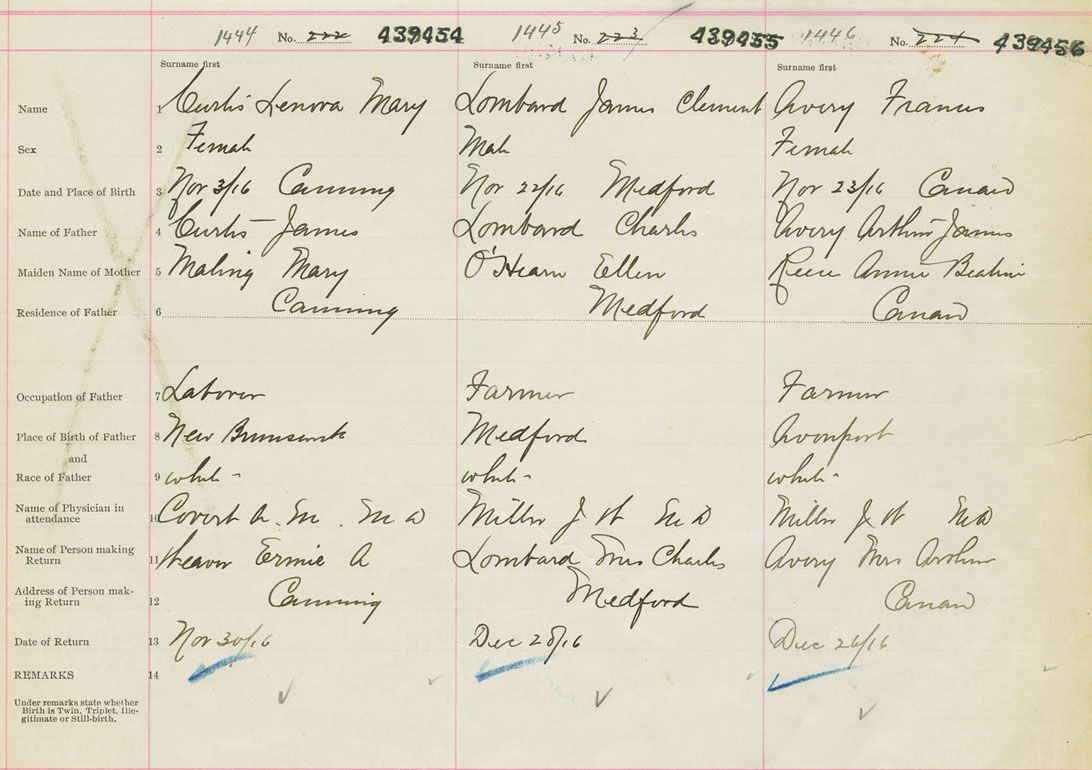 1444 No. 222 439454 1445 No. 223 439455 1446 No. 224 439456
Surname first Surname first Surname first
Name 1 Curtis Lenora Mary Lombard James Clement Avery Francis
Sex 2 Female Male Female
Date and Place of Birth 3 Nov 3/16 Canning Nov 22/16 Medford Nov 23/16 Canaan
Name of Father 4 Curtis James Lombard Charles Avery Arthur James
Maiden Name of Mother 5 Maling Mary O'Hearn Ellen Reese Annie
Residence of Father 6 Canning Medford Canaan
Occupation of Father 7 Laborer Farmer Farmer
Place of Birth of Father 8 New Brunswick Medford Avonport
and
Race of Father 9 white white white
Name of Physician in
attendance 10 Covert A. M. M D Miller J W M D Miller J W M D
Name of Person making
Return 11 Weaver Ernie A Lombard Mrs Charles Avery Mrs Arthur
Address of Person mak-
ing Return 12 Canning Medford Canaan
Date of Return 13 Nov 30/16 Dec 28/16 Dec 26/16
REMARKS 14
Under remarks state whether
Birth is Twin, Triplet, Ille-
gitimate or Still-birth.